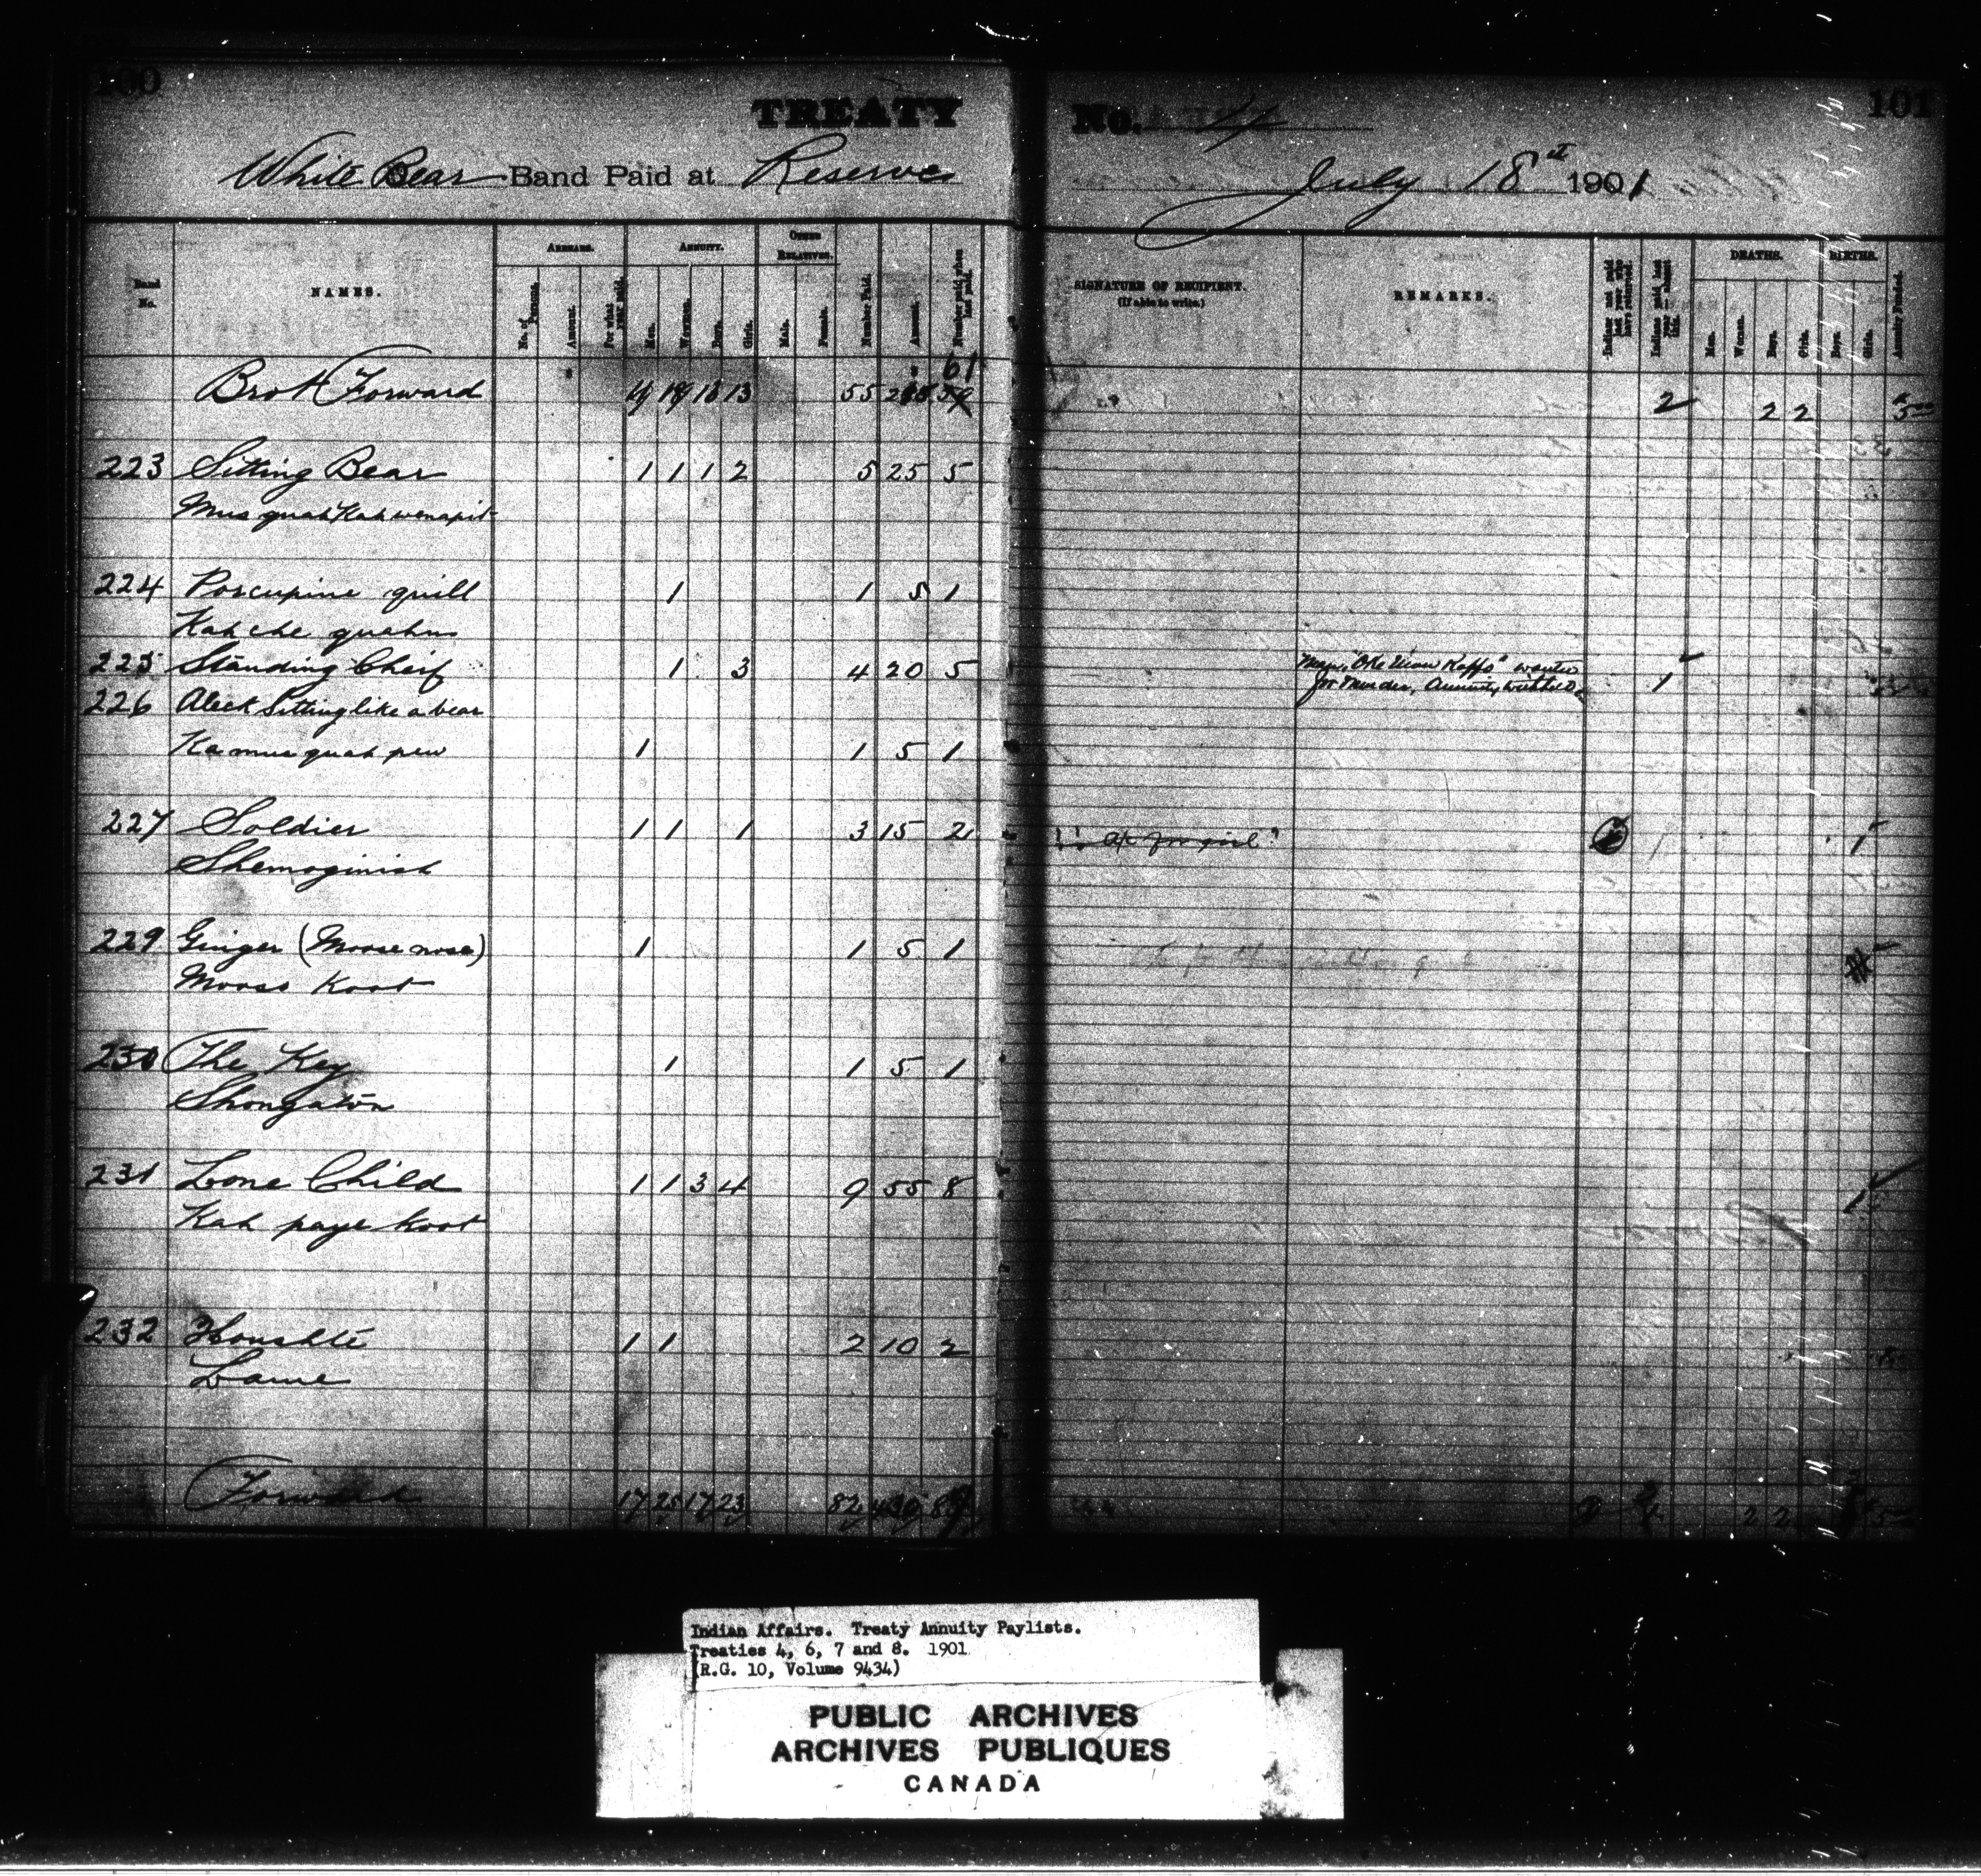 100
TREATY
White Bear Band Paid at Reserve
Band No.
NAMES.
ARREARS.
No. of Persons.
Amount.
For what year paid.
ANNUITY.
Men.
Women.
Boys.
Girls.
OTHER RELATIVES.
Male.
Female.
Number Paid.
Amount.
Number paid when last paid.
61
Brot Forward 13 55 59
223 Sitting Bear 1 1 1 2 5 25 5
Mus quah Kah wenapit
224 Porcupine quill 1 1 5 1
Kah che quahns
225 Standing Cheif 1 3 4 20 5
226 Aleck Sitting like a bear
Ka mus quah pew 1 1 5 1
227 Soldier 1 1 1 3 15 2
Shemoginish
229 Ginger (Moose nose) 1 1 5 1
Mooss Koot
230 The Key 1 1 5 1
Shongaton
231 Lone Child 1 1 3 4 9 55 8
Kah paye koot
232 Houshte 1 1 2 10 2
Lame
Forward 17 25 17 23 82 430
101
No. 4
July 18th 1901
SIGNATURE OF RECIPIENT.
(If able to write.)
REMARKS.
Indians not paid last year who have returned.
Indians paid last year absent this.
DEATHS.
Men.
Women.
Boys.
Girls.
BIRTHS.
Boys.
Girls.
Annuity Funded.
2 2 2 5
Man, "Oke Kapps" wanted
for Murder, Annuity withheld 1
1
1
2 2 5
Indian Affairs. Treaty Annuity Paylists.
Treaties 4, 6, 7 and 8. 1901
(R.G. 10, Volume 9434)
PUBLIC ARCHIVES
ARCHIVES PUBLIQUES
CANADA